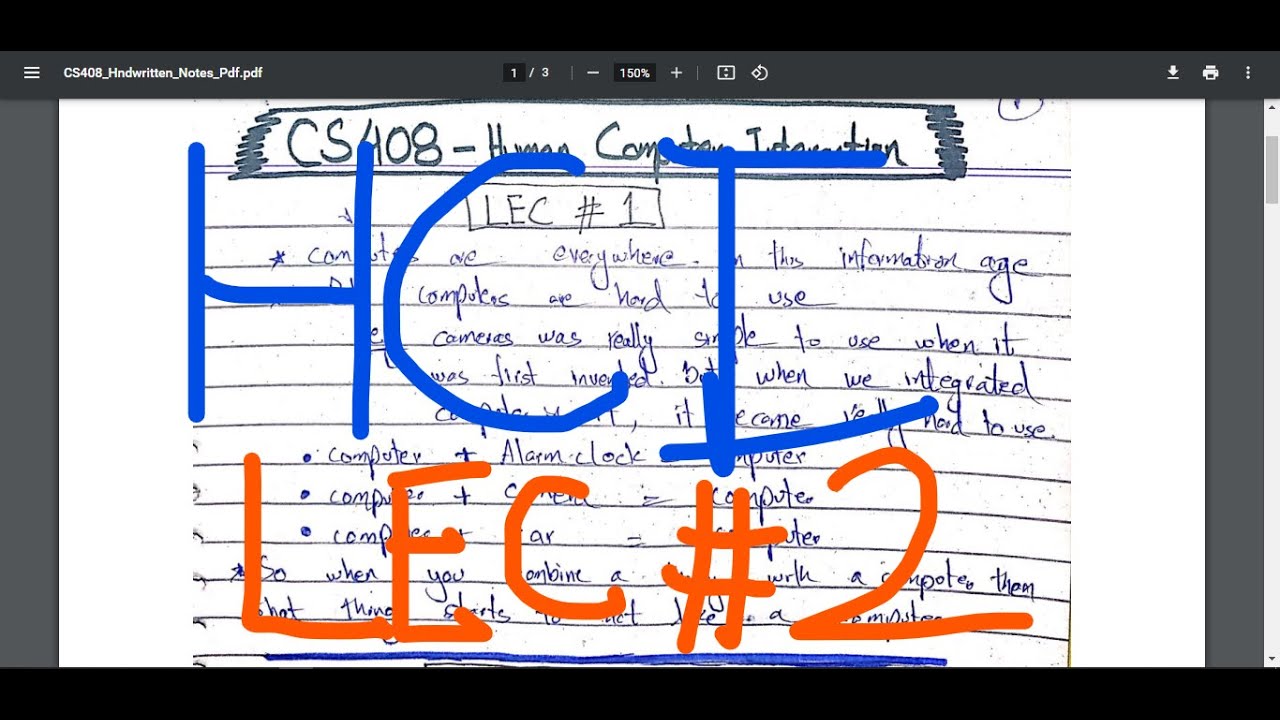 CS408_Hndwritten_Notes_Pdf.pdf
1 / 3
150%
CS408 - Human Computer Interaction
HCI
LEC # 1
* computers are everywhere. In this information age
computers are hard to use
cameras was really simple to use when it
was first invented. But when we integrated
computer it, it became really hard to use.
• computer + Alarm clock = computer
• computer + camera = computer
• computer + car = computer
LEC #2
* So when you combine a thing with a computer then
that thing starts to act like a computer